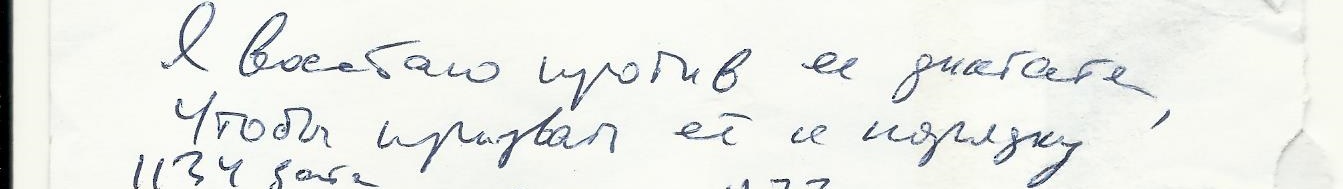 Я восстаю против ее диктата,
Чтобы призвать её к порядку
1134 дата